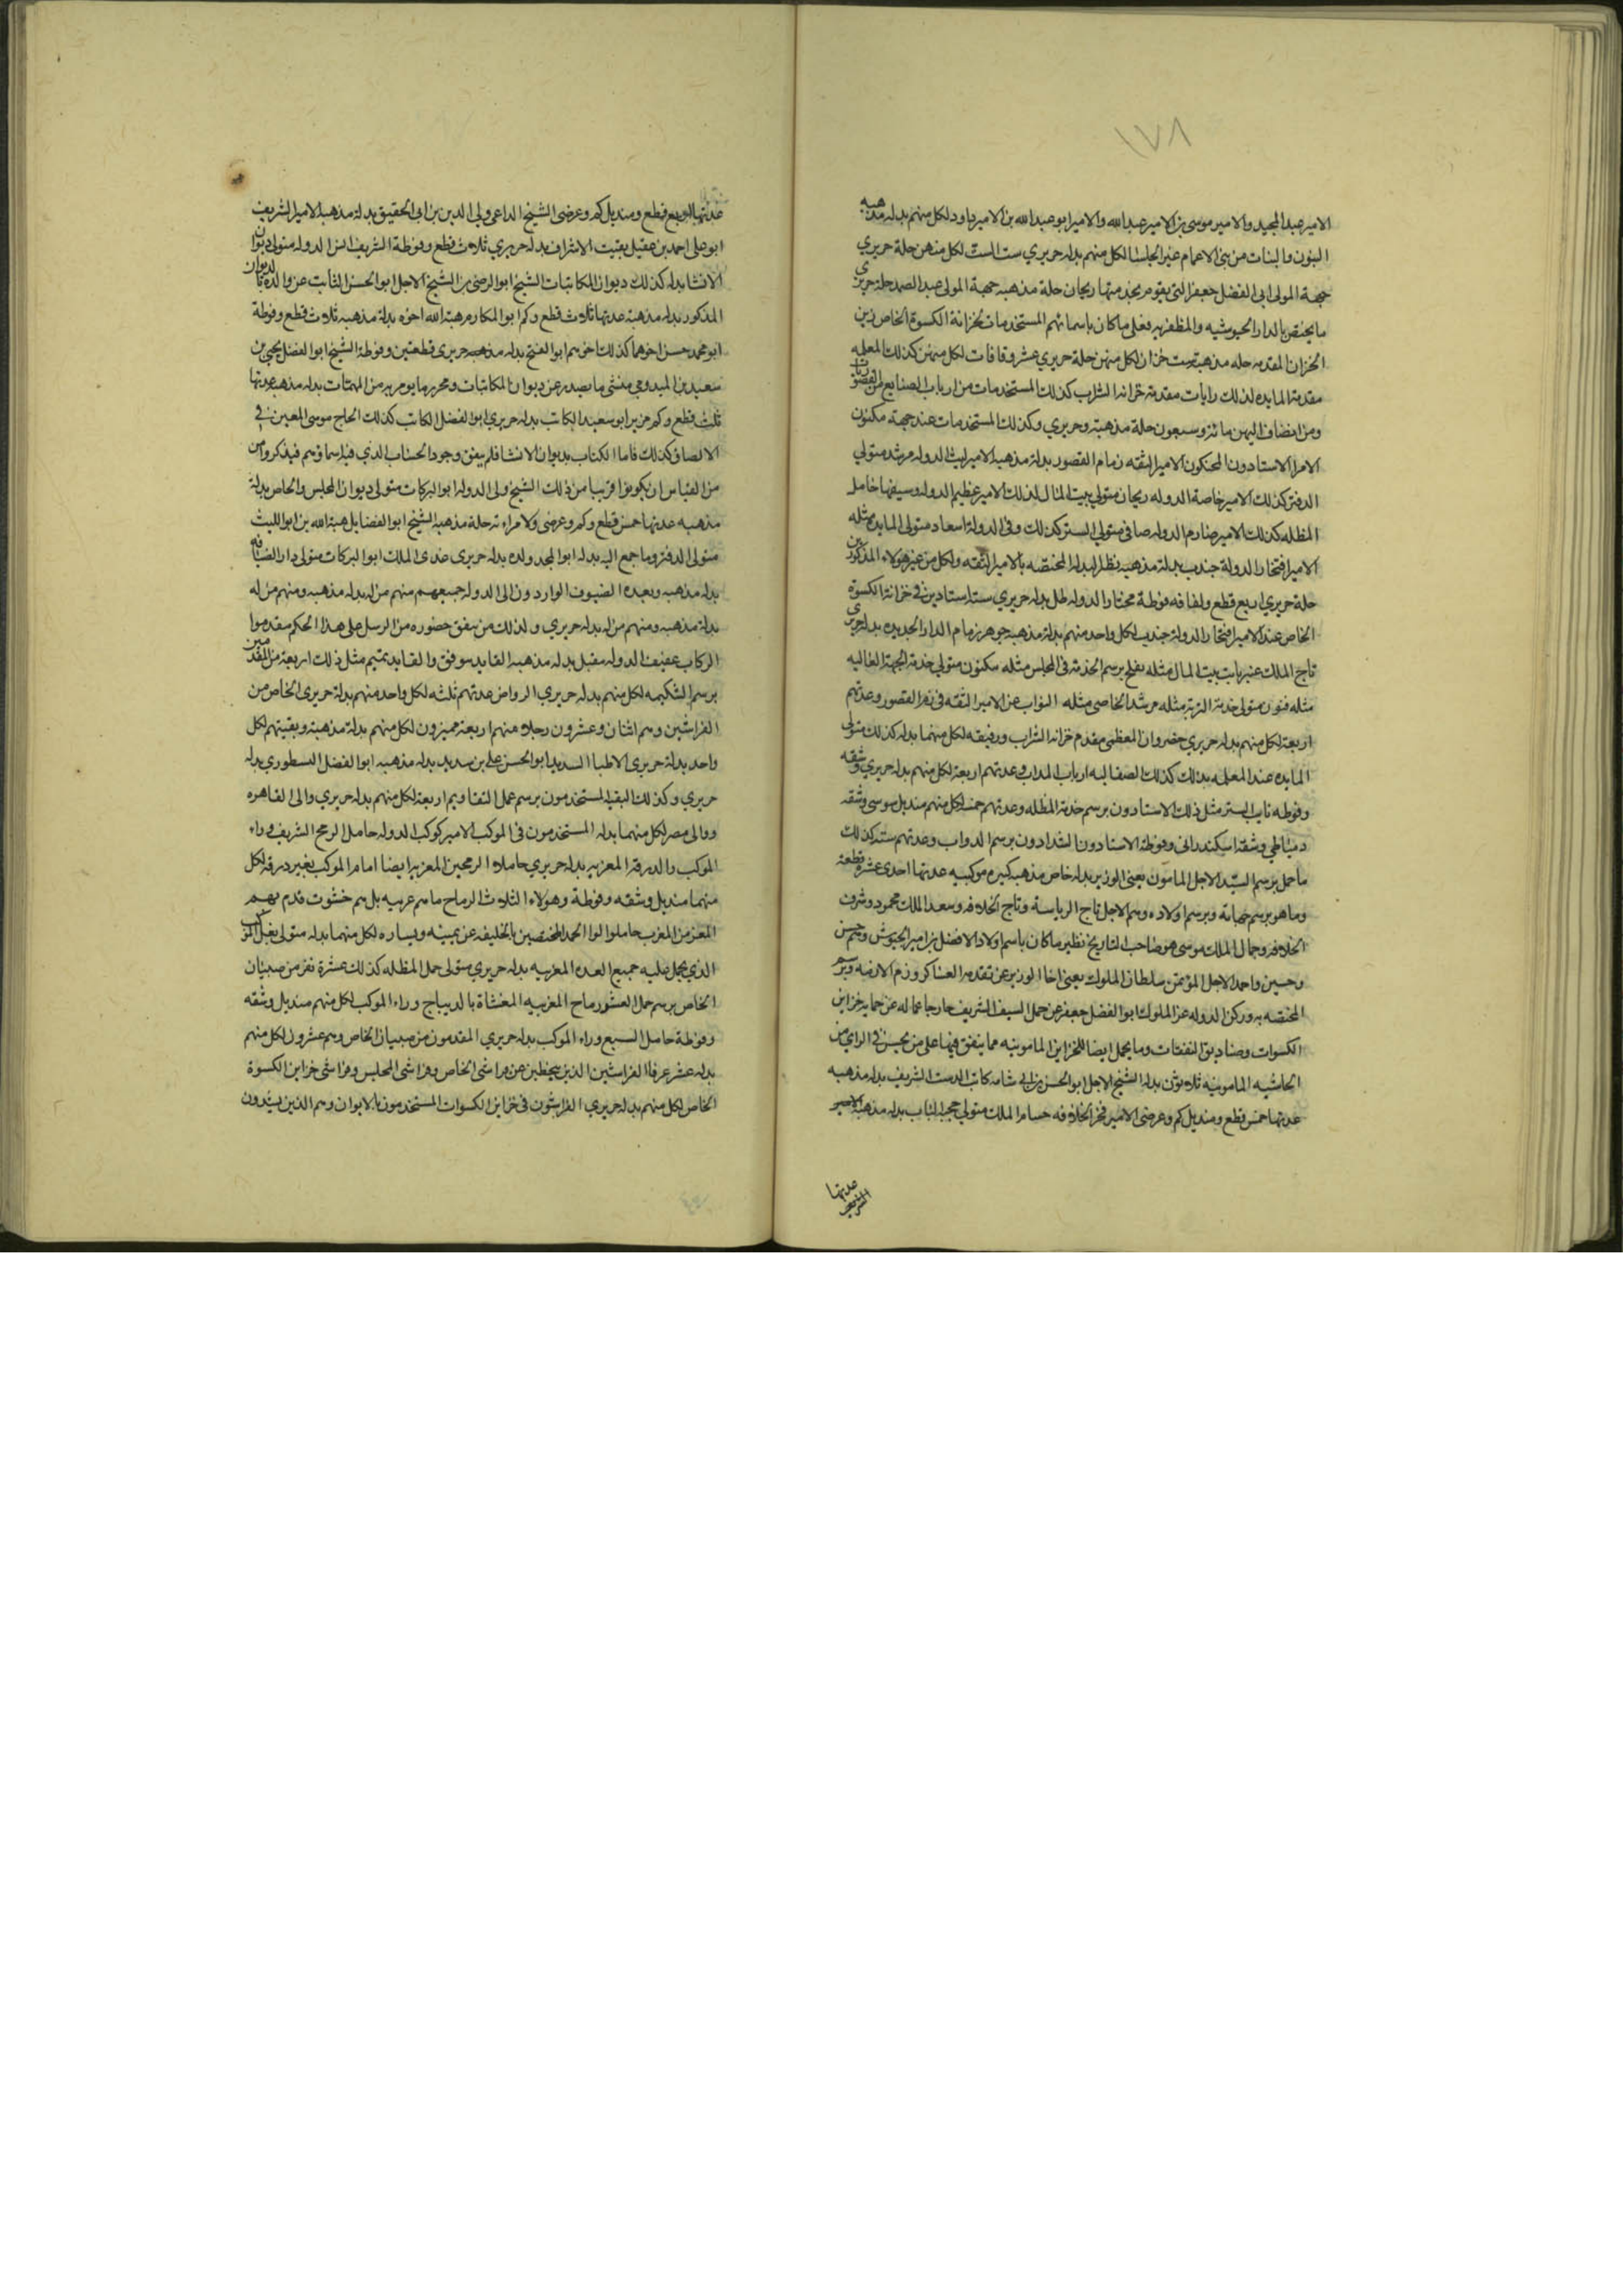 ١٧٨
الامير عبد المجيد والامير موسى بن الامير عبد الله والامير ابو عبد الله بن الامير داود لكل منهم بدله مذهبه
البنون والبنات من بني الاعمام غير الجلسا لكل منهم بدله حريري ست الست لكل منهن حلة حريري
جهة المولى ابى الفضل جعفر التي يقوم بخدمتها ريحان حلة مذهبه جهة المولى عبد الصمد حلة حريري
ما يختص بالدار الجيوشيه والمظفريه فعلى ما كان باسمائهم المستخدمات بخزانة الكسوة الخاص زين
الخزان المقدمه حله مذهبه ست خزان لكل منهن حلة حريري عشر وقافات لكل منهن كذلك المعلمه
مقدمة المايده كذلك رايات مقدمة خزانه الشراب كذلك المستخدمات من ارباب الصنايع من القصوريات
ومن انضاف اليهن مائة وسبعون حلة مذهبة وحريري وكذلك المستخدمات عند جهة مكنون
الامرا الاستادون المحنكون الامير الثقه زمام القصور بدلة مذهبه الامير ليث الدوله مرشد متولي
الدفتر كذلك الامير خاصة الدوله ريحان متولي بيت المال كذلك الامير عظيم الدوله وسيفها حامل
المظله كذلك الامير صارم الدوله صافى متولي الستر كذلك وفى الدولة اسعاد متولى المايده مثله
الامير افتخار الدولة جندب بدلة مذهبه نظير البدله المختصه بالامير الثقه ولكل من غير هولاء المذكورين
حلة حريري اربع قطع ولفافه فوطة مختار الدوله ظل بدله حريري ستة استادين في خزانة الكسوة
الخاص عند الامير افتخار الدولة جندب لكل واحد منهم بدلة مذهبه جوهر زمام الدار الجديده بدله حريري
تاج الملك عنبر نايب بيت المال مثله مفلح برسم الخدمة فى المجلس مثله مكنون متولي خدمة الجهة العاليه
مثله فنون متولى خدمة التربة مثله مرشد الخاصى مثله النواب عن الامير الثقه فى زم القصور وعدتهم
اربعة لكل منهم بدله حريري خضروان المعظمى مقدم خزانه الشراب ورفيقه لكل منهما بدله كذلك متولى
المايده عند المعلمه بدلك كذلك الصقالبه ارباب المداب وعدتهم اربعة لكل منهم بدله حريري وشقه
وفوطه نايب الستر مثل ذلك الاستادون برسم خدمة المظله وعدتهم خمسه لكل منهم منديل سوسى وشقه
دمياطي وشقه اسكندراني وفوطة الاستادون الشدادون برسم الدواب وعدتهم سته كذلك
ما حمل برسم السيد الاجل المامون يعني الوزير بدله خاص مذهبه كبيره موكبيه عدتها احدى عشره قطعة
وما هو برسم جهاته وبرسم اولاده وهم الاجل تاج الرياسة وتاج الخلافه وسعد الملك محمود وشرف
الخلافه وجمال الملك موسى هو صاحب التاريخ نظير ما كان باسم اولاد الافضل بن امير الجيوش وهم حسن
وحسين واحمد الاجل المؤتمن سلطان الملوك يعنى اخا الوزير عن تقدمه العساكر وزم الازمه وبرسم
المختصه به وركن الدوله عز الملوك ابو الفضل جعفر عن حمل السيف الشريف خارجا عما له عن حمايه خزاين
الكسوات وصناديق النفقات وما يحمل ايضا للخزاين المامونيه مما ينفق فيها على من يحسن في الراي من
الحاشيه المامونيه ثلاثون بدله الشيخ الاجل ابو الحسن بن ابي شامه كاتب الدست الشريف بدله مذهبه
عدتها خمس قطع ومنديل كم وعرضى الامير فخر الخلافه حسام الملك متولي حجبه الباب بدله مذهبه
عدتها اربع قطع ومنديل كم وعرضى الشيخ الداعى ولي الدين بن ابي الحقيق بدلة مذهبه الامير الشريف
ابو على احمد بن عقيل نقيب الاشراف بدله حريري ثلاث قطع وفوطة الشريف انس الدوله متولى ديوان
الانشا بدله كذلك ديوان المكاتبات الشيخ ابو الرضى بن الشيخ الاجل ابو الحسن النائب عن والده
المذكور بدله مذهبة عدتها ثلاث قطع وكم ابو المكارم هبة الله اخوه بدلة مذهبه ثلاث قطع وفوطة
ابو محمد حسن اخوهما كذلك اخوهم ابو الفتح بدله مذهبه حريرى قطعتين وفوطة الشيخ ابو الفضل يحيى بن
سعيد بن الميدومي منشى ما يصدر عن ديوان المكاتبات ومحرر ما يومر به من المهمات بدله مذهبه عدتها
ثلث قطع وكم مزير ابو سعيد الكاتب بدله حريري ابو الفضل الكاتب كذلك الحاج موسى المعين فى
الالصاق كذلك فاما الكتاب بديوان الانشا فلم يتفق وجود الحساب الذي فيه اسماؤهم فيذكروا من
من القياس ان يكونوا قريبا من ذلك الشيخ ولى الدوله ابو البركات متولى ديوان المجلس والخاص بدلة
مذهبه عدتها خمس قطع وكم وعرضى ولامراته حلة مذهبه الشيخ ابو الفضايل هبة الله بن ابو الليث
متولى الدفتر وما جمع اليه بدله ابو المجد ولده بدله حريرى عدى الملك ابو البركات متولى دار الضيافه
بدله مذهبه وبعده الضيوف الواردون الى الدوله جميعهم منهم من له بدله مذهبه ومنهم من له
بدله مذهبه ومنهم من له بدله حريري وكذلك من يتفق حضوره من الرسل على هذا الحكم مقدموا
الركاب عفيف الدوله مقبل بدله مذهبه القايد موفق والقايد تميم مثل ذلك اربعة من المقدمين
برسم الشكيمه لكل منهم بدله حريري الرواض عدتهم ثلثه لكل واحد منهم بدلة حريرى الخاص من
الفراشين وهم اثنان وعشرون رجلا منهم اربعة مميزون لكل منهم بدلة مذهبة وبقيتهم لكل
واحد بدلة حريرى الاطبا السديد ابو الحسن على بن سديد بدله مذهبه ابو الفضل النسطوري بدله
حريري وكذلك البقيه المستخدمون برسم عمل التقاويم اربعة لكل منهم بدله حريري والى القاهره
ووالى مصر لكل منهما بدله المستخدمون فى الموكب الامير كوكب الدوله حامل الرمح الشريف وراء
الموكب والدرقة المعزيه بدله حريري حاملا الرمحين المعزيه ايضا امام الموكب بغير درقه لكل
منهما منديل وشقه وفوطة وهولاء الثلاث الرماح ما هم عربيه بل هم خشوت قدم بهم
المعز من المغرب حاملوا لوا الحمد المختصين بالخليفه عن يمينه ويساره لكل منهما بدله متولى بغل المركب
الذي يحمل عليه جميع العده المعزيه بدله حريري متولى حمل المظله كذلك عشرة نفر من صبيان
الخاص برسم حمل العشر رماح المعزبيه المغشاة بالديباج وراء الموكب لكل منهم منديل وشقه
وفوطة حامل السبع وراء الموكب بدله حريري المقدمون من صبيان الخاص وهم عشرون لكل منهم
بدله عشر عرفا الفراشين الذين يحظين عن فراشى الخاص وفراشى المجلس وفراشى خزاين الكسوة
الخاص لكل منهم بدله حريري الفراشون في خزاين الكسوات المستخدمون بالايوان وهم الذين يشدون